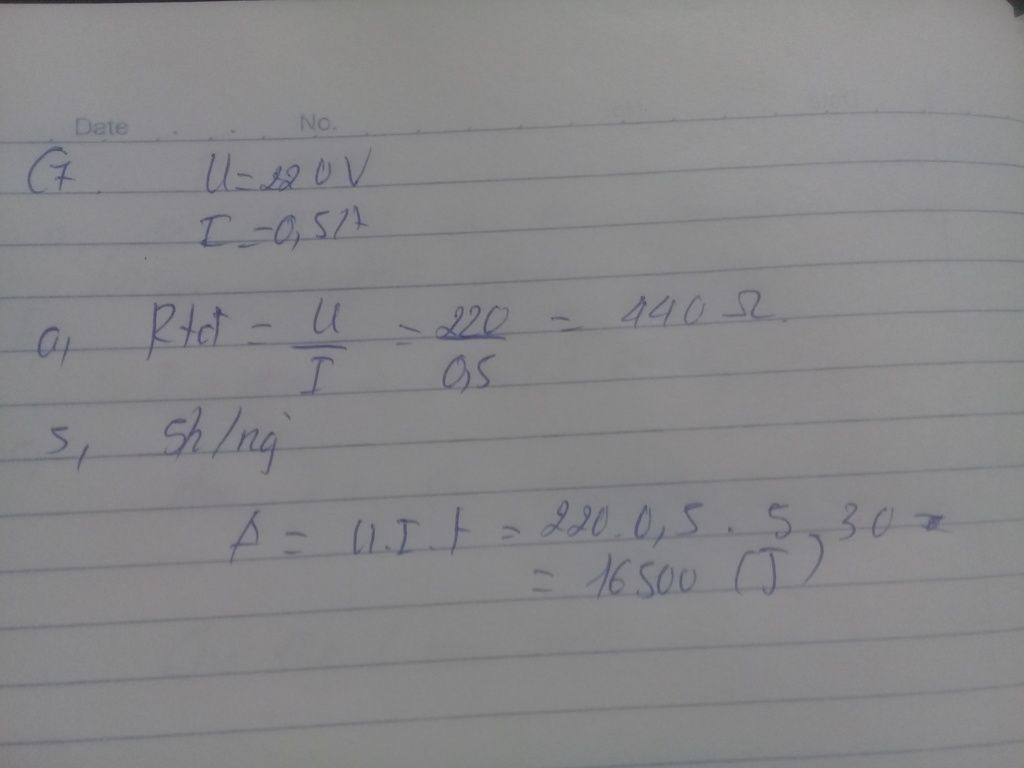 Date No.
C7. U = 220V
I = 0,5A
a, Rtđ = U/I = 220/0,5 = 440 Ω.
5, 5h/ng
A = U.I.t = 220.0,5.5.30 =
= 16500 (J)